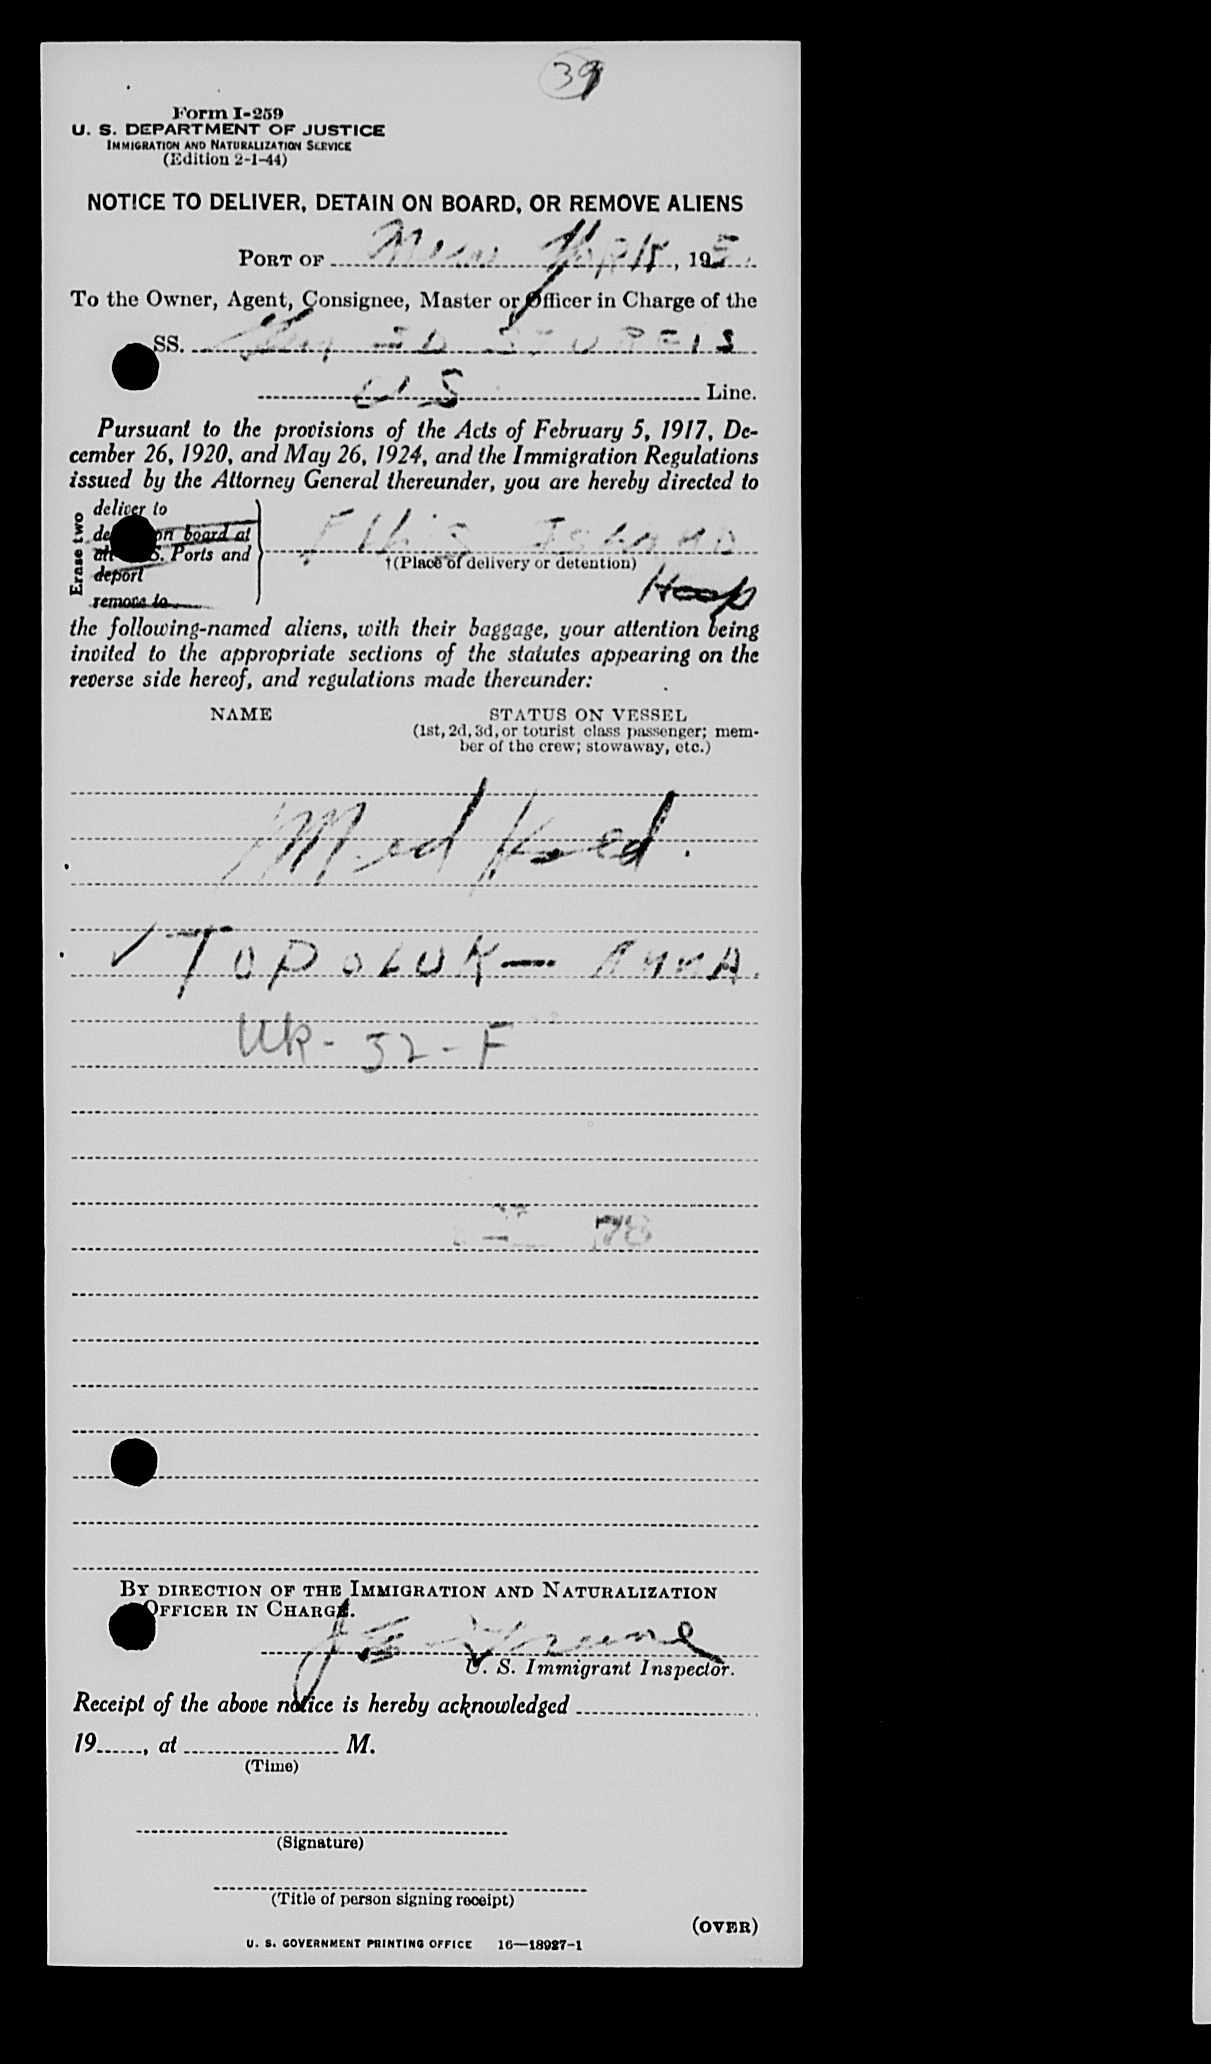 39
Form I-259
U. S. DEPARTMENT OF JUSTICE
IMMIGRATION AND NATURALIZATION SERVICE
(Edition 2-1-44)
NOTICE TO DELIVER, DETAIN ON BOARD, OR REMOVE ALIENS
PORT OF New York, 195
To the Owner, Agent, Consignee, Master or Officer in Charge of the
SS. STURGIS
US Line.
Pursuant to the provisions of the Acts of February 5, 1917, De-
cember 26, 1920, and May 26, 1924, and the Immigration Regulations
issued by the Attorney General thereunder, you are hereby directed to
Erase two
deliver to
on board at
S. Ports and
deport
remove to
Ellis Island
†(Place of delivery or detention)
Hosp
the following-named aliens, with their baggage, your attention being
invited to the appropriate sections of the statutes appearing on the
reverse side hereof, and regulations made thereunder:
NAME STATUS ON VESSEL
(1st, 2d, 3d, or tourist class passenger; mem-
ber of the crew; stowaway, etc.)
Med Held.
✓ TOPOLUK — ANNA
UK - 32 - F
78
BY DIRECTION OF THE IMMIGRATION AND NATURALIZATION
OFFICER IN CHARGE.
U. S. Immigrant Inspector.
Receipt of the above notice is hereby acknowledged
19, at M.
(Time)
(Signature)
(Title of person signing receipt)
(OVER)
U. S. GOVERNMENT PRINTING OFFICE 16—18927-1